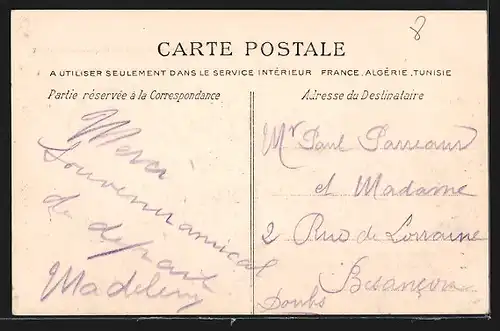 8
CARTE POSTALE
A UTILISER SEULEMENT DANS LE SERVICE INTÉRIEUR FRANCE, ALGÉRIE, TUNISIE
Partie réservée à la Correspondance
Adresse du Destinataire
Merci
Souvenir amical
de
Mr Paul Parreaux
et Madame
2 Rue de Lorraine
Besançon
Doubs